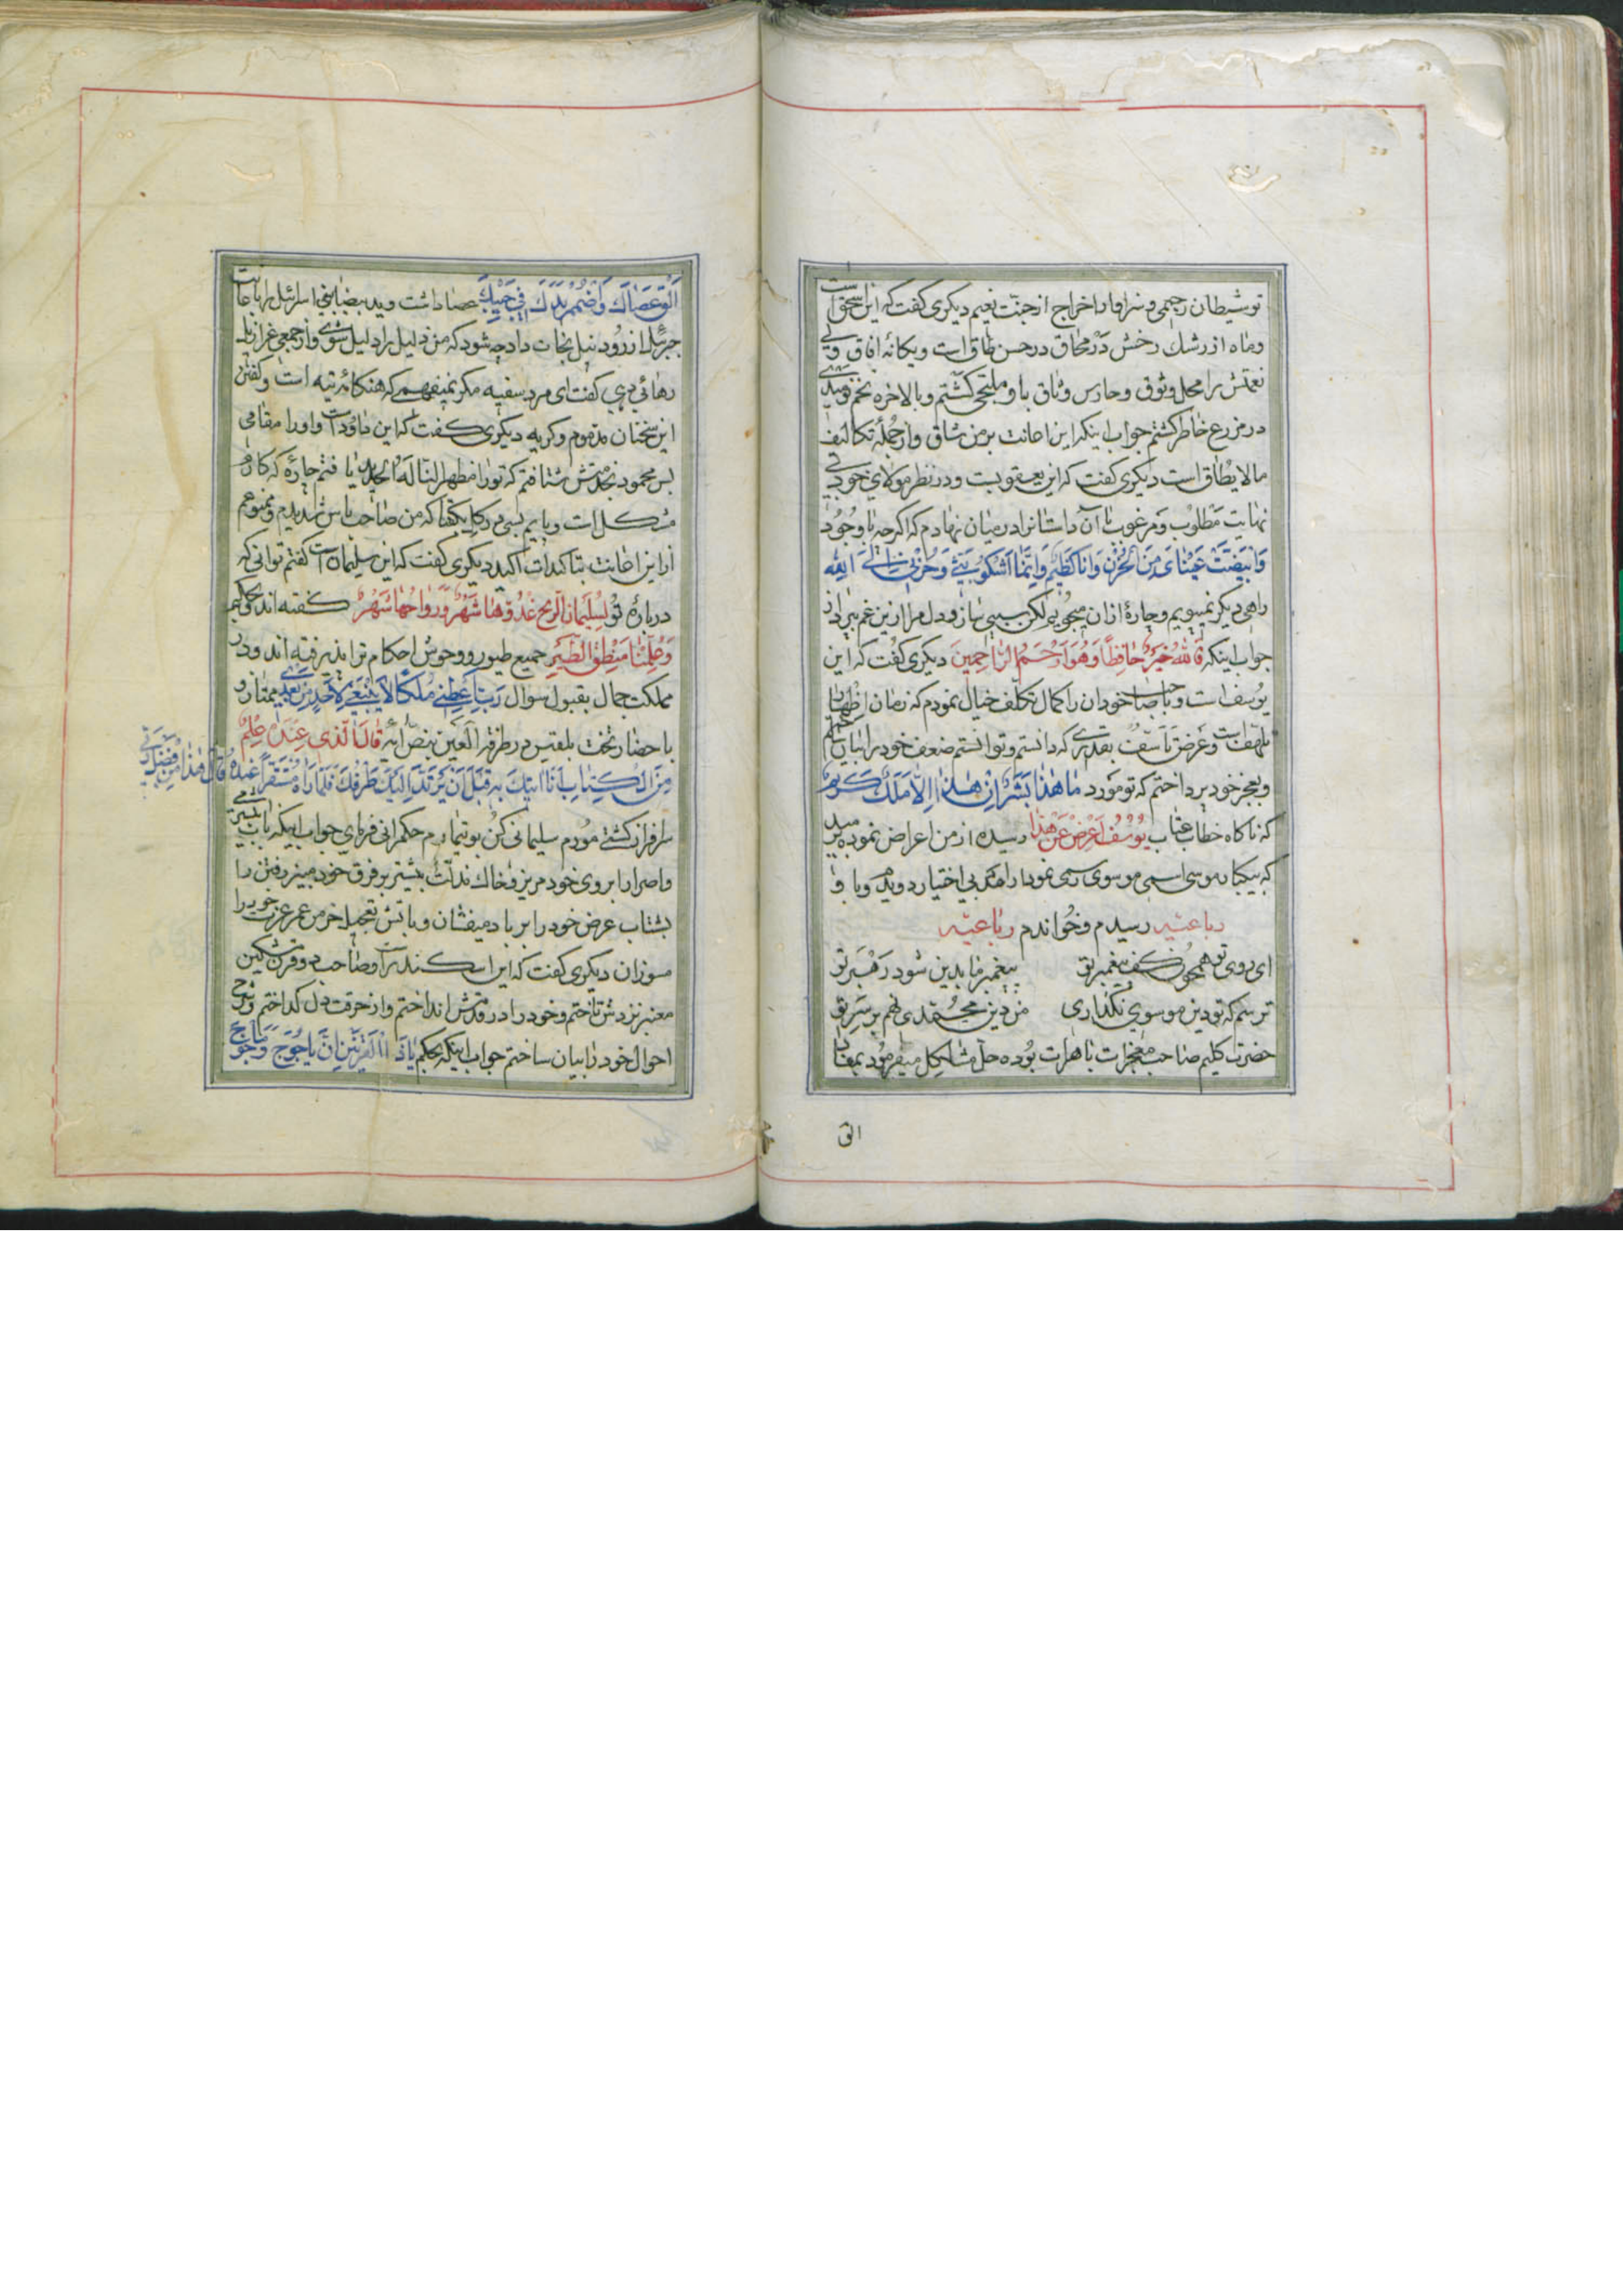 تو شیطان رجیمی و سزاوار اخراج از جنت نعیم دیکری کفت که این اسحق است
و ماه از رشك رخش در محاق در حسن طاق است و یکانه افاق
نعمتش را محل وثوق و حارس وثاق باو ملتجی کشتم و بالاخره تخم
در مزرع خاطر کشتم جواب اینکه این اعانت بر من شاق و از جمله تکالیف
مالایطاق است دیکری کفت که این یعقوبست و در نظر مولای خود
نهایت مطلوب و مرغوب با آن داستانرا در میان نهادم که اکرچه با وجود
وَابْیَضَّتْ عَیْنَایَ مِنَ الْحُزْنِ وَاَنَا کَظِیمٌ وَاِنَّمَا اَشْکُو بَثِّی وَحُزْنِی اِلَی اللّه
راهی دیکر نمیپویم و چارهٔ از ان میجویی لکن سببی ساز و دل مرا ازین غم بپرداز
جواب اینکه فَاللّهُ خَیْرٌ حَافِظًا وَهُوَ اَرْحَمُ الرَّاحِمِینَ دیکری کفت که این
یوسف است و با صاحب خودان را کمال تکلف خیال نمودم که زمان اظهار
تلهف است و عرض تأسف بقدری که دانستم و توانستم ضعف خود را بیان
و بعجز خود پرداختم که تو مورد مَا هٰذَا بَشَرًا اِنْ هٰذَا اِلاَّ مَلَكٌ کَرِیمٌ
که ناکاه خطاب عتاب یُوسُفُ اَعْرِضْ عَنْ هٰذَا رسیده از من اعراض نموده
که بیکبار موسی اسمی موسوی رسمی نمودار امد بی اختیار دویدم و با
رباعیه رسیدم و خواندم رباعیه
ای روی تو همچون کف پیغمبر تو پیغمبر ما بدین شود رهبر تو
ترسم که تو دین موسوی نکذاری من دین محمدی نهم بر سر تو
حضرت کلیم صاحب معجزات باهرات بوده حل مشاکل میفرمود بمفاد
الق
اَلْقِ عَصَاكَ وَاضْمُمْ یَدَكَ فِی جَیْبِكَ عصا داشت و ید بیضا بنی اسرائیل را باعانت
جبرئیل از رود نیل نجات داد چه شود که من ذلیل را دلیل شوی و از جمعی
رهائی دهی کفت ای مرد سفیه مکر نمیفهمی که هنکامهٔ تیه است و کفتن
این سخنان مذموم و کریه دیکری کفت که این داود است و او را مقامی
بس محمود بخدمتش شتافتم که تو را مظهر النّا لَهُ الْحَدید یافتم چارهٔ که کارم
مشکل است و پایم بسی در کل بکفتا که من صاحب باس شدیدم و ممنوعم
از این اعانت بتاکیدات اکید دیکری کفت که این سلیمان است کفتم توانی که
دربارهٔ تو لِسُلَیْمَانَ الرِّیحَ غُدُوُّهَا شَهْرٌ وَرَوَاحُهَا شَهْرٌ کفته اند و بحکم
وَعُلِّمْنَا مَنْطِقَ الطَّیْرِ جمیع طیور و وحوش احکام ترا پذیرفته اند و در
مملکت جمال بقبول سوال رَبِّ اَعْطِنِی مُلْکًا لَا یَنْبَغِی لِاَحَدٍ مِنْ بَعْدِی ممتاز و
باحضار تخت بلقیس در طرفة العین بنص ایهٔ قَالَ الَّذِی عِنْدَهُ عِلْمٌ
مِنَ الْکِتَابِ اَنَا اٰتِیكَ بِهِ قَبْلَ اَنْ یَرْتَدَّ اِلَیْكَ طَرْفُكَ فَلَمَّا رَاٰهُ مُسْتَقِرًّا عِنْدَهُ قَالَ هٰذَا مِنْ فَضْلِ رَبِّی
سرافراز کشتی مورم سلیمانی کن بوتیمارم حکمرانی فرمای جواب اینکه
و اصرار ابروی خود مریز و خاك مذلت بیشتر بر فرق خود مبیز رفتن را
بشتاب عرض خود را بر باد میفشان و باتش تعجیل خرمن عمر عزیز خود را
مسوزان دیکری کفت که این اسکندر است و صاحب دو قرن
معنبر نزدش تاختم و خود را در قدمش انداختم و از حرقت دل کداختم و شرح
احوال خود را بیان ساختم جواب اینکه بحکم یَا ذَا الْقَرْنَیْنِ اِنَّ یَاْجُوجَ وَمَاْجُوجَ